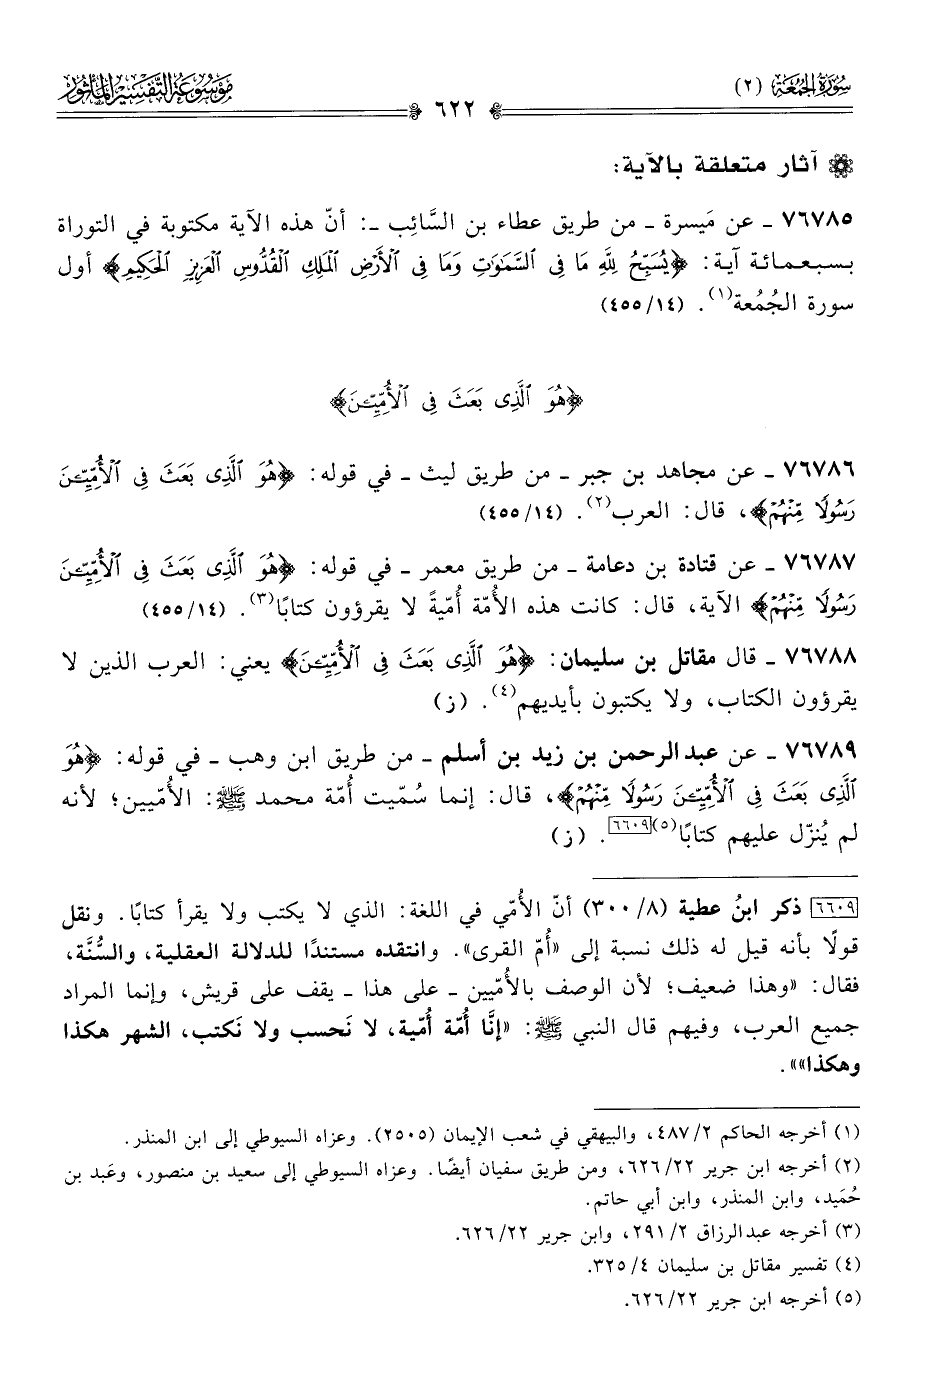 سُورَةُ الجُمُعَة (٢)
٦٢٢
مَوْسُوعَة التَّفْسِير المَأْثُور
آثار متعلقة بالآية:
٧٦٧٨٥ ـ عن مَيسرة ـ من طريق عطاء بن السَّائِب ـ: أنّ هذه الآية مكتوبة في التوراة
بسبعمائة آية: ﴿يُسَبِّحُ لِلَّهِ مَا فِى ٱلسَّمَٰوَٰتِ وَمَا فِى ٱلْأَرْضِ ٱلْمَلِكِ ٱلْقُدُّوسِ ٱلْعَزِيزِ ٱلْحَكِيمِ﴾ أول
سورة الجُمُعة(١). (١٤/ ٤٥٥)
﴿هُوَ ٱلَّذِى بَعَثَ فِى ٱلْأُمِّيِّـۧنَ﴾
٧٦٧٨٦ ـ عن مجاهد بن جبر ـ من طريق ليث ـ في قوله: ﴿هُوَ ٱلَّذِى بَعَثَ فِى ٱلْأُمِّيِّـۧنَ
رَسُولًا مِّنْهُمْ﴾، قال: العرب(٢). (١٤/ ٤٥٥)
٧٦٧٨٧ ـ عن قتادة بن دعامة ـ من طريق معمر ـ في قوله: ﴿هُوَ ٱلَّذِى بَعَثَ فِى ٱلْأُمِّيِّـۧنَ
رَسُولًا مِّنْهُمْ﴾ الآية، قال: كانت هذه الأمّة أُميةً لا يقرؤون كتابًا(٣). (١٤/ ٤٥٥)
٧٦٧٨٨ ـ قال مقاتل بن سليمان: ﴿هُوَ ٱلَّذِى بَعَثَ فِى ٱلْأُمِّيِّـۧنَ﴾ يعني: العرب الذين لا
يقرؤون الكتاب، ولا يكتبون بأيديهم(٤). (ز)
٧٦٧٨٩ ـ عن عبدالرحمن بن زيد بن أسلم ـ من طريق ابن وهب ـ في قوله: ﴿هُوَ
ٱلَّذِى بَعَثَ فِى ٱلْأُمِّيِّـۧنَ رَسُولًا مِّنْهُمْ﴾، قال: إنما سُمّيت أُمّة محمد ﷺ: الأُمّيين؛ لأنه
لم يُنزّل عليهم كتابًا(٥)[٦٦٠٩]. (ز)
[٦٦٠٩] ذكر ابنُ عطية (٨/ ٣٠٠) أنّ الأُمّي في اللغة: الذي لا يكتب ولا يقرأ كتابًا. ونقل
قولًا بأنه قيل له ذلك نسبة إلى «أُمّ القرى». وانتقده مستندًا للدلالة العقلية، والسُّنَّة،
فقال: «وهذا ضعيف؛ لأن الوصف بالأُمّيين ـ على هذا ـ يقف على قريش، وإنما المراد
جميع العرب، وفيهم قال النبي ﷺ: «إنَّا أُمّة أُمّية، لا نَحسب ولا نَكتب، الشهر هكذا
وهكذا»».
(١) أخرجه الحاكم ٢/ ٤٨٧، والبيهقي في شعب الإيمان (٢٥٠٥). وعزاه السيوطي إلى ابن المنذر.
(٢) أخرجه ابن جرير ٢٢/ ٦٢٦، ومن طريق سفيان أيضًا. وعزاه السيوطي إلى سعيد بن منصور، وعَبد بن
حُمَيد، وابن المنذر، وابن أبي حاتم.
(٣) أخرجه عبدالرزاق ٢/ ٢٩١، وابن جرير ٢٢/ ٦٢٦.
(٤) تفسير مقاتل بن سليمان ٤/ ٣٢٥.
(٥) أخرجه ابن جرير ٢٢/ ٦٢٦.